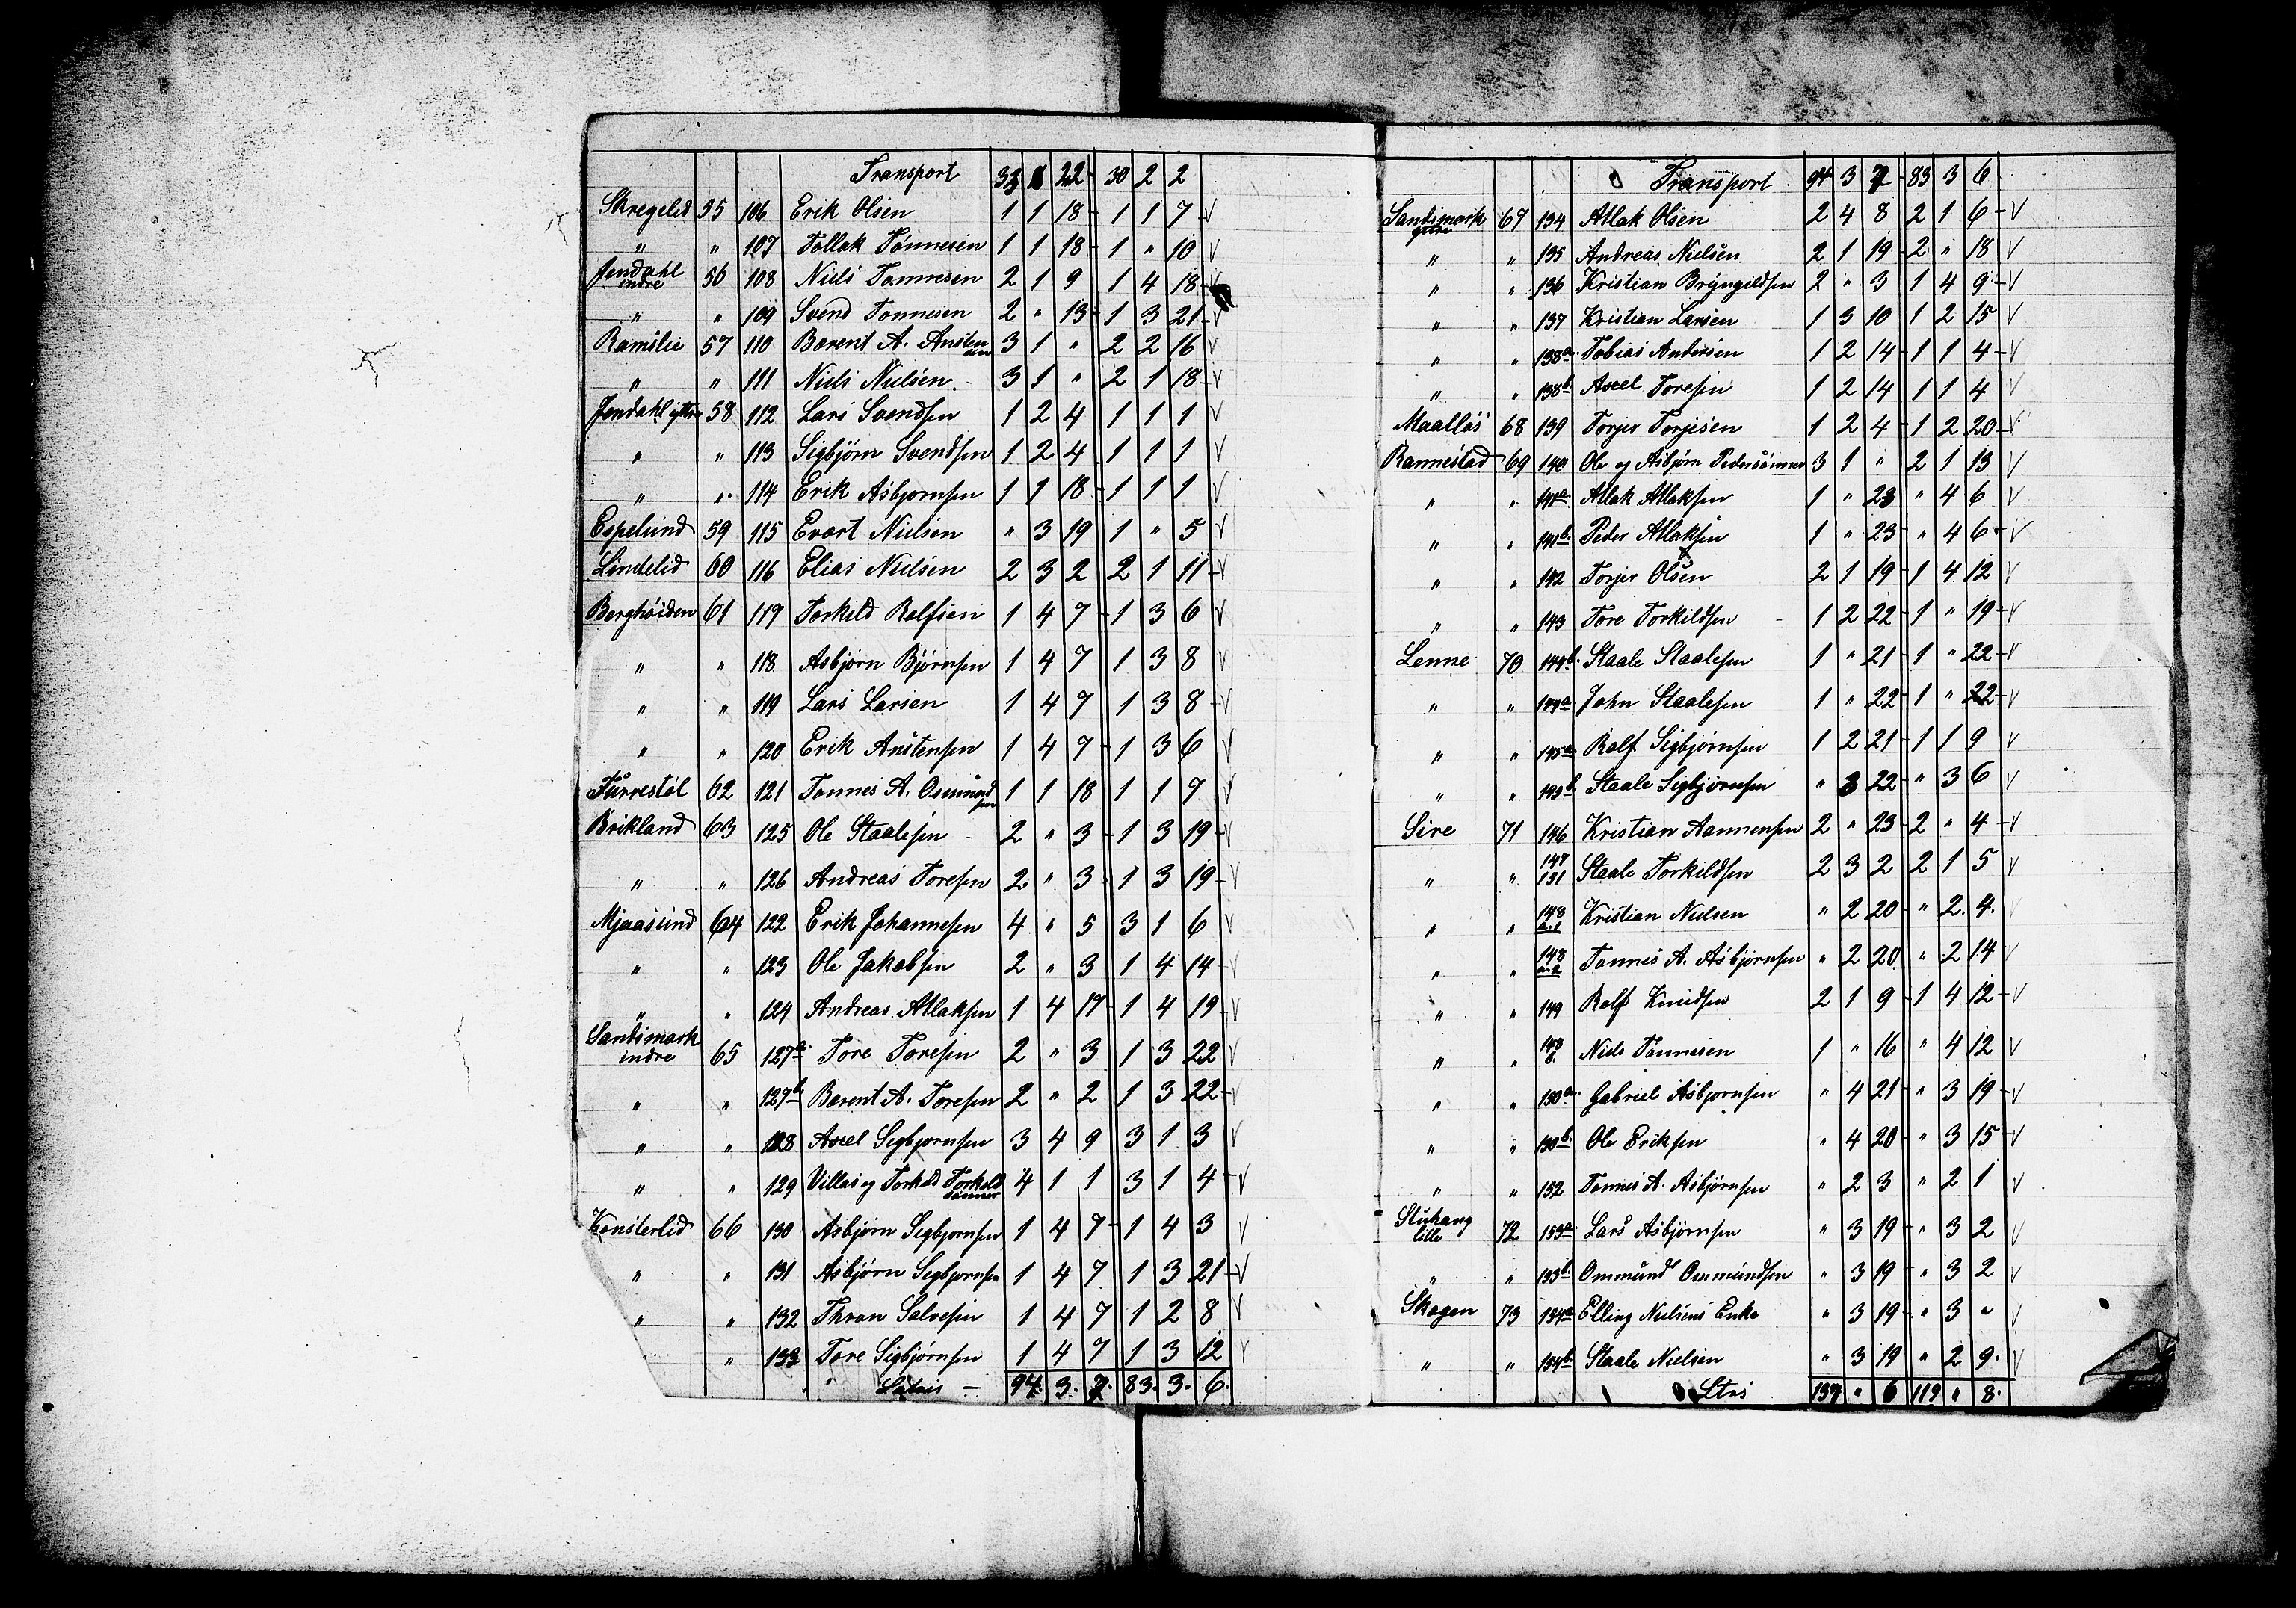 Transport 33 1 22 - 30 2 2
Skregelid 55 106 Erik Olsen 1 1 18 - 1 1 7 V
" " 107 Tollak Tønnesen 1 1 18 - 1 " 10 V
Jendahl indre 56 108 Niels Tønnesen 2 1 9 1 4 18 - V
" " 109 Svend Tønnesen 2 " 13 - 1 3 21 - V
Ramslie 57 110 Berent A. Austensen 3 1 " 2 2 16 V
" " 111 Niels Nielsen 3 1 " 2 1 18 - V
Jendahl yttre 58 112 Lars Svendsen 1 2 4 1 1 1 V
" " 113 Sigbjørn Svendsen 1 2 4 1 1 1 V
" " 114 Erik Asbjornsen 1 1 18 - 1 1 1 V
Espelund 59 115 Evert Nielsen " 3 19 1 " 5 V
Lindelid 60 116 Elias Nielsen 2 3 2 2 1 11 - V
Berghöiden 61 119 Torkild Rolfsen 1 4 7 - 1 3 6 V
" " 118 Asbjørn Bjørnsen 1 4 7 1 3 8 V
" " 119 Lars Larsen 1 4 7 1 3 8 - V
" " 120 Erik Austensen 1 4 7 - 1 3 6 V
Furrestöl 62 121 Tønnes A. Osmundsen 1 1 18 1 1 7 V
Brikland 63 125 Ole Staalesen 2 " 3 - 1 3 19 - V
" " 126 Andreas Toresen 2 " 3 1 3 19 - V
Mjaasund 64 122 Erik Johannesen 4 " 5 3 1 6 V
" " 123 Ole Jakobsen 2 " 3 1 4 14 - V
" " 124 Andreas Atlaksen 1 4 17 - 1 4 19 V
Sandsmark indre 65 127a Tore Toresen 2 " 3 1 3 22 V
" " 127b Berent A. Toresen 2 " 2 1 3 22 - V
" " 128 Axel Sigbjornsen 3 4 9 3 1 3 V
" " 129 Villas og Torkild Torkildsønner 4 1 1 3 1 4 - V
Konsterlid 66 130 Asbjørn Sigbjornsen 1 4 7 - 1 4 3 V
" " 131 Asbjørn Sigbjornsen 1 4 7 1 3 21 - V
" " 132 Thron Salvesen 1 4 7 1 2 8 V
" 133 Tore Sigbjørnsen 1 4 7 1 3 12 V
Lateris - 94. 3. 7. 83. 3. 6.
Transport 94 3 7 - 83 3 6
Sandsmark ytre 67 134 Atlak Olsen 2 4 8 2 1 6 - V
" " 135 Andreas Nielsen 2 1 19 - 2 " 18 V
" " 136 Kristian Bryngildsen 2 " 3 1 4 9 - V
" " 137 Kristian Larsen 1 3 10 1 2 15 V
" " 138a Tobias Andersen 1 2 14 - 1 1 4 - V
" " 138b Axel Toresen 1 2 14 1 1 4 V
Maallös 68 139 Torjer Torjesen 1 2 4 - 1 2 20 - V
Rannestad 69 140 Ole og Asbjørn Pedersönner 3 1 " 2 1 13 V
" " 141a Atlak Atlaksen 1 " 23 " 4 6 V
" " 141b Peder Atlaksen 1 " 23 - " 4 6 - V
" " 142 Torjer Olsen 2 1 19 - 1 4 12 V
" " 143 Tore Torkildsen 1 2 22 - 1 " 19 - V
Lenne 70 144b Staale Staalesen 1 " 21 - 1 " 22 - V
" " 144a John Staalesen 1 " 22 - 1 " 22 - V
" " 145a Rolf Sigbjørnsen 1 2 21 - 1 1 9 V
" " 145b Staale Sigbjørnsen " 3 22 - " 3 6 V
Sire 71 146 Kristian Aamensen 2 " 23 - 2 " 4 - V
" " 147 151 Staale Torkildsen 2 3 2 2 1 5 V
" " 148 a.1 Kristian Nielsen " 2 20 - " 2. 4. V
" " 148 a.2 Tønnes A. Asbjørnsen " 2 20 " 2 14 V
" " 149 Rolf Knudsen 2 1 9 - 1 4 12 - V
" " 148 b. Niels Tønnesen 1 " 16 " 4 12 V
" " 150a Gabriel Asbjornsen " 4 21 - " 3 19 - V
" " 150b Ole Eriksen " 4 20 - " 3 15 - V
" " 152 Tønnes A. Asbjørnsen " 2 3 " 2 1 V
Sluhaug lille 72 153a Lars Asbjörnsen " 3 19 - " 3 2 V
" " 153b Ommund Ommundsen " 3 19 - " 3 2 V
Skogen 73 154a Elling Nielsens Enke " 3 19 - " 3 " V
" " 154b Staale Nielsen " 3 19 " 2 9. V
Ltrs 137 " 6 119 " 8.